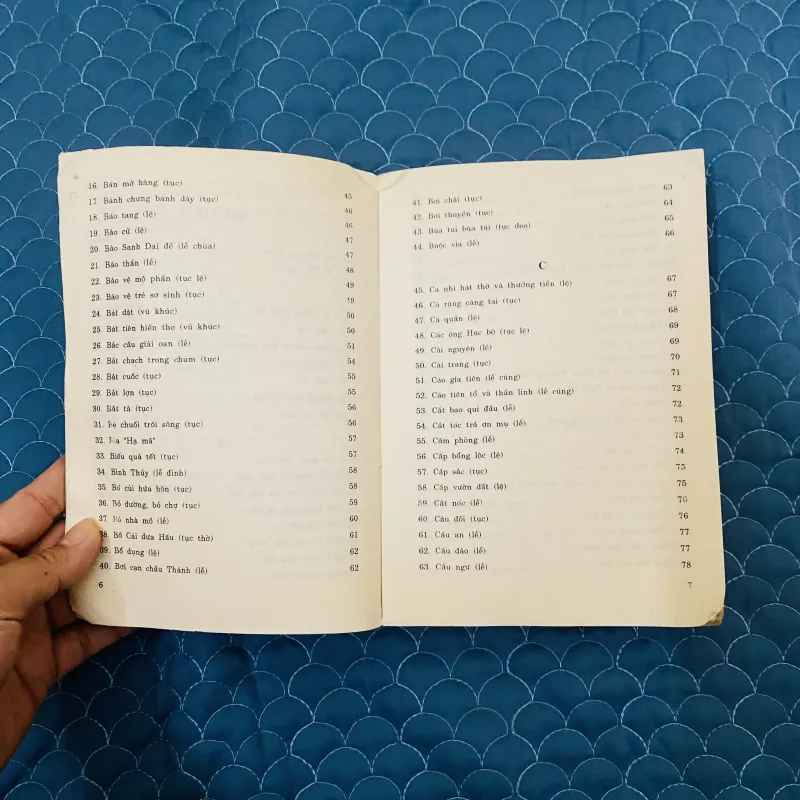 16. Bán mở hàng (tục)
17. Bánh chưng bánh dày (tục) 45
18. Báo tang (lệ) 46
19. Bảo cử (lệ) 46
20. Bảo Sanh Đại đế (lễ chùa) 47
21. Bảo thần (lễ) 47
22. Bảo vệ mộ phần (tục lệ) 48
23. Bảo vệ trẻ sơ sinh (tục) 49
24. Bát dật (vũ khúc) 50
25. Bát tiên hiến thọ (vũ khúc) 50
26. Bắc cầu giải oan (lễ) 51
27. Bắt chạch trong chum (tục) 54
28. Bắt cuốc (tục) 55
29. Bắt lợn (tục) 55
30. Bắt tà (tục) 56
31. Bè chuối trôi sông (tục) 56
32. Bia "Hạ mã" 57
33. Biếu quà tết (tục) 57
34. Bình Thủy (lễ đình) 58
35. Bó củi hứa hôn (tục) 58
36. Bỏ đường, bỏ chợ (tục) 59
37. Bỏ nhà mồ (lễ) 60
38. Bố Cái dưa Hấu (tục thờ) 61
39. Bổ dụng (lệ) 62
40. Bơi cạn chầu Thánh (lễ) 62
6
41. Bơi chải (tục) 63
42. Bơi thuyền (tục) 64
43. Bùa tui bùa túi (tục đeo) 65
44. Buộc vía (lễ) 66
C
45. Ca nhi hát thờ và thưởng tiền (lệ) 67
46. Cà răng căng tai (tục) 67
47. Cả quấn (lệ) 68
48. Các ông Húc bờ (tục lệ) 69
49. Cải nguyên (lễ) 69
50. Cải trang (tục) 70
51. Cáo gia tiên (lễ cúng) 71
52. Cáo tiên tổ và thần linh (lễ cúng) 72
53. Cắt bao qui đầu (lễ) 72
54. Cắt tóc trả ơn mụ (lễ) 73
55. Cấm phòng (lễ) 73
56. Cấp bổng lộc (lệ) 74
57. Cấp sắc (tục) 75
58. Cấp vườn đất (lệ) 75
59. Cất nóc (lễ) 76
60. Câu đối (tục) 76
61. Cầu an (lễ) 77
62. Cầu đảo (lễ) 77
63. Cầu ngư (lễ) 78
7